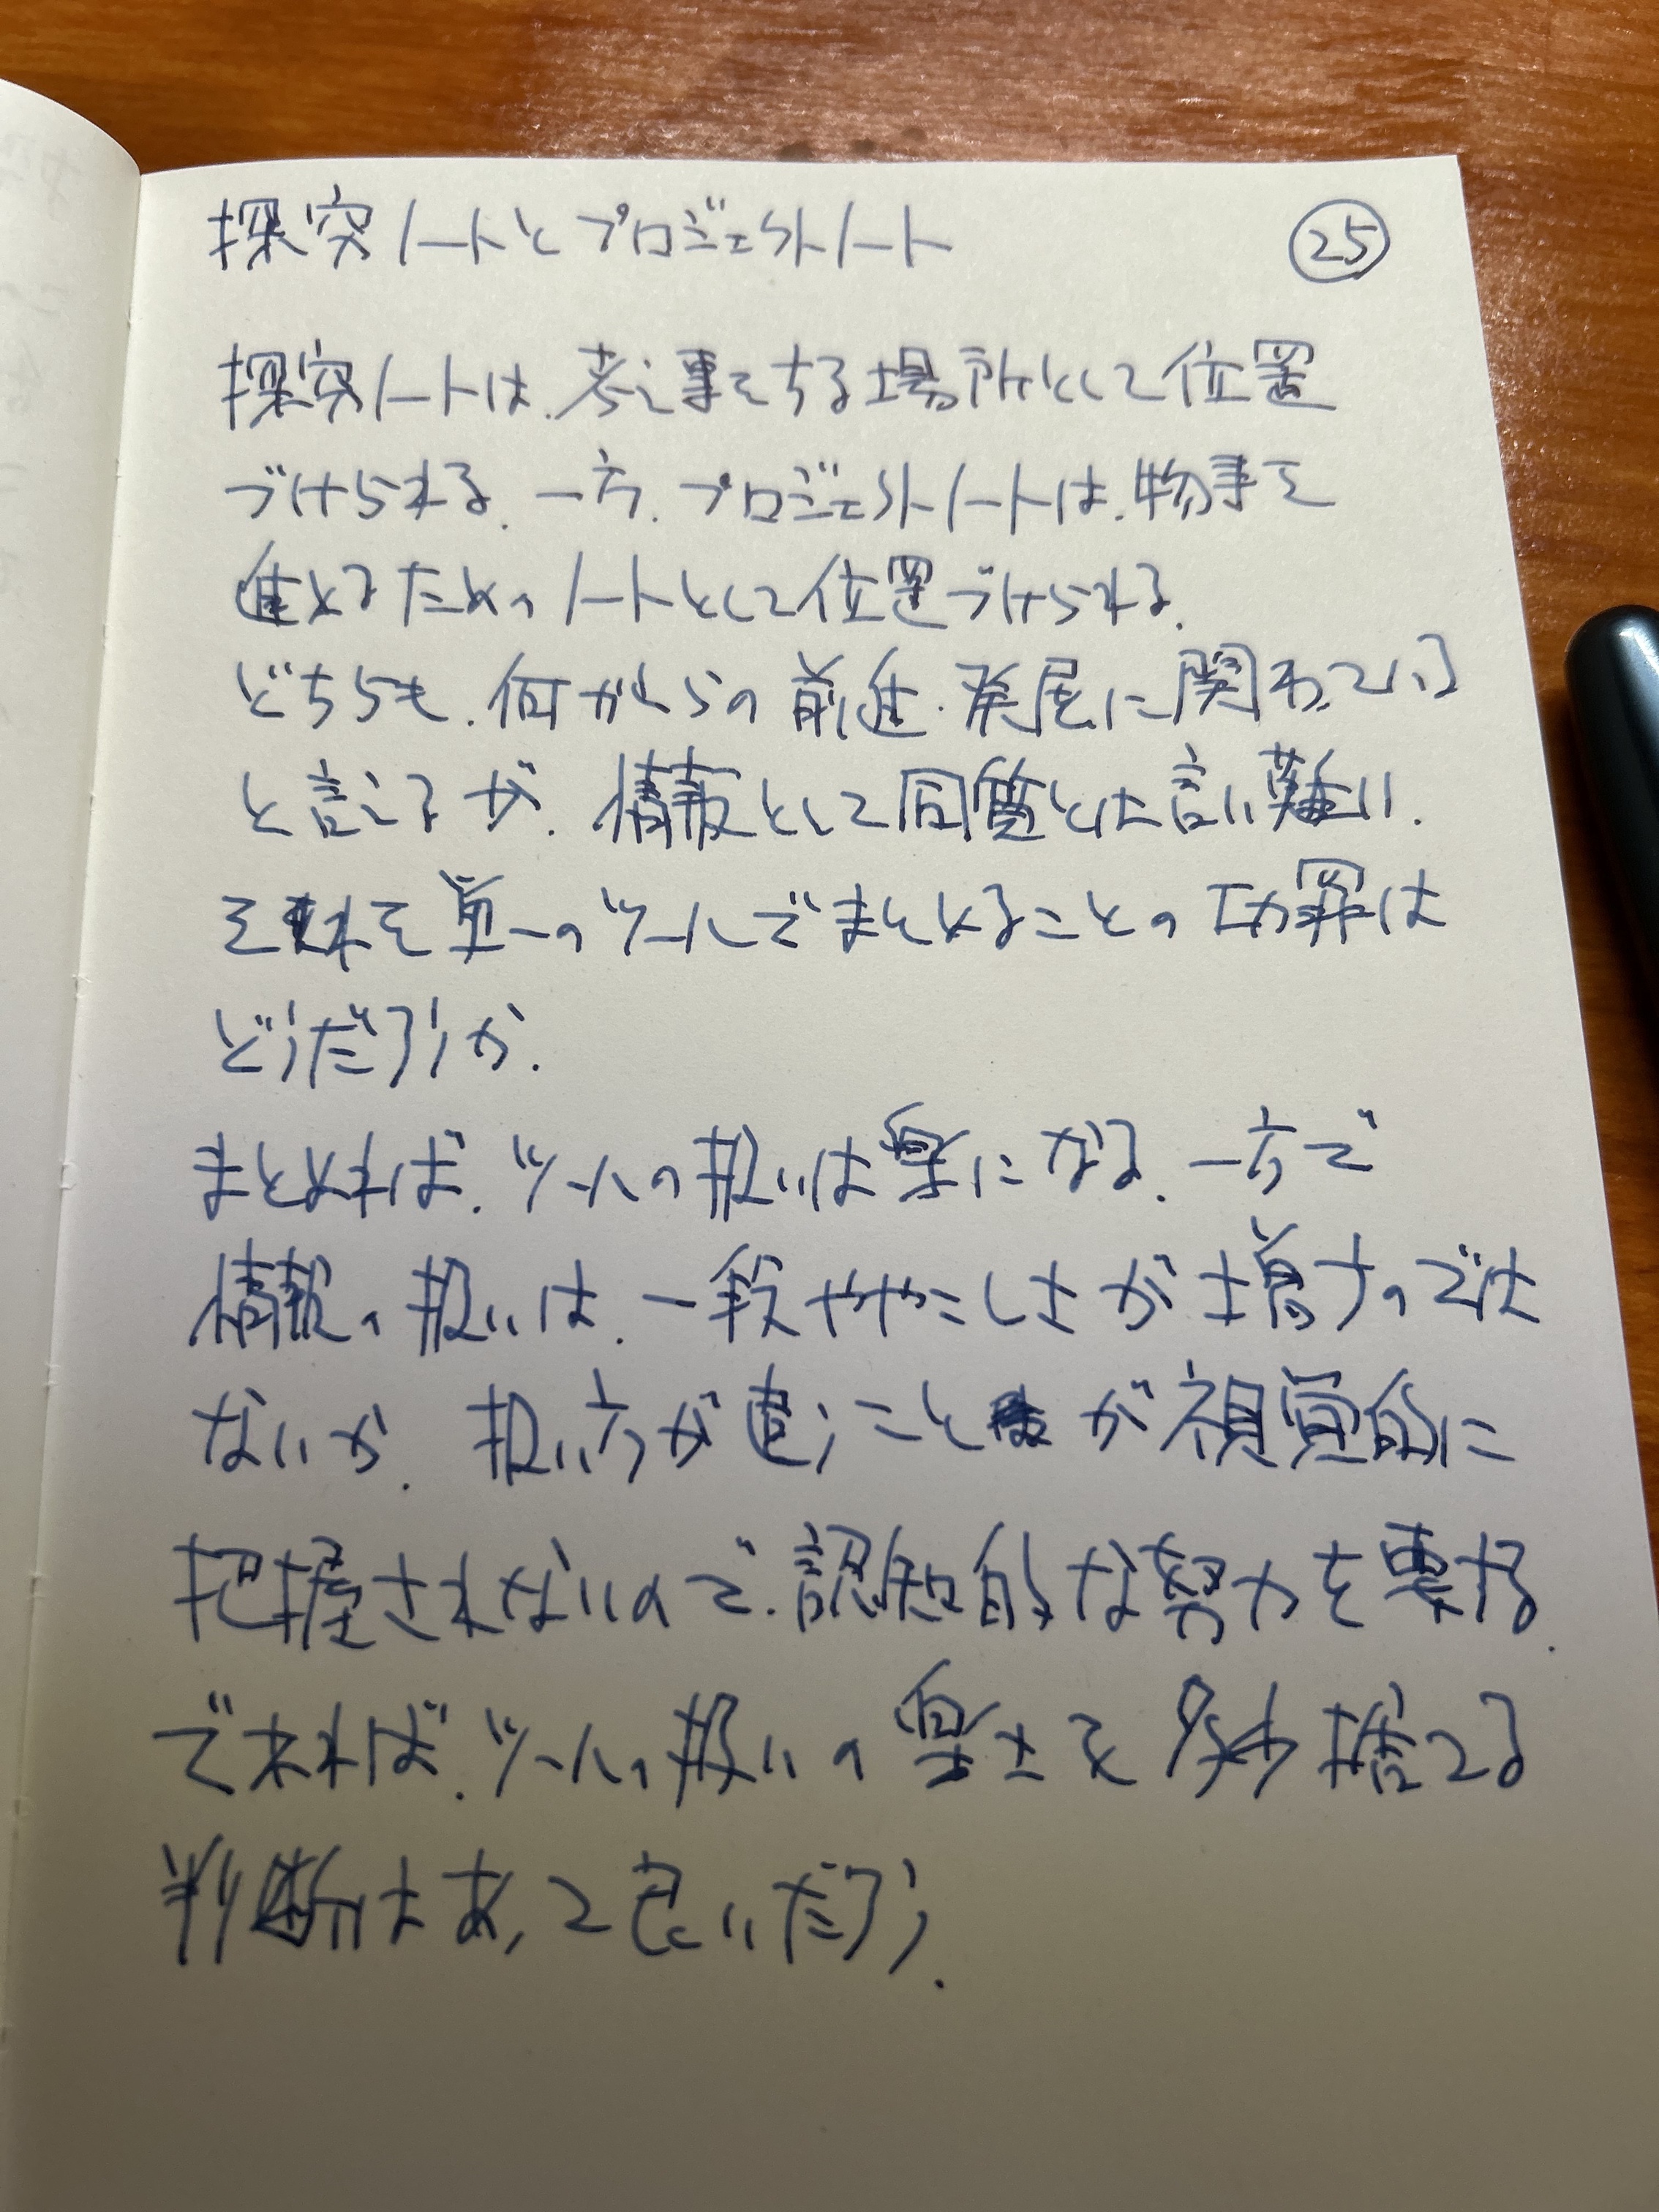 探究ノートとプロジェクトノート
㉕
探究ノートは、考え事をする場所として位置
づけられる。一方、プロジェクトノートは、物事を
進めるためのノートとして位置づけられる。
どちらも、何かしらの前進・発展に関わっている
と言えるが、情報として同質とは言い難い。
それを単一のツールでまとめることの功罪は
どうだろうか。
まとめれば、ツールの扱いは楽になる。一方で
情報の扱いは、一段ややこしさが増すのでは
ないか。扱い方が違うことが視覚的に
把握されないので、認知的な努力を要する。
であれば、ツールの扱いの楽さを多少捨てる
判断はあって良いだろう。